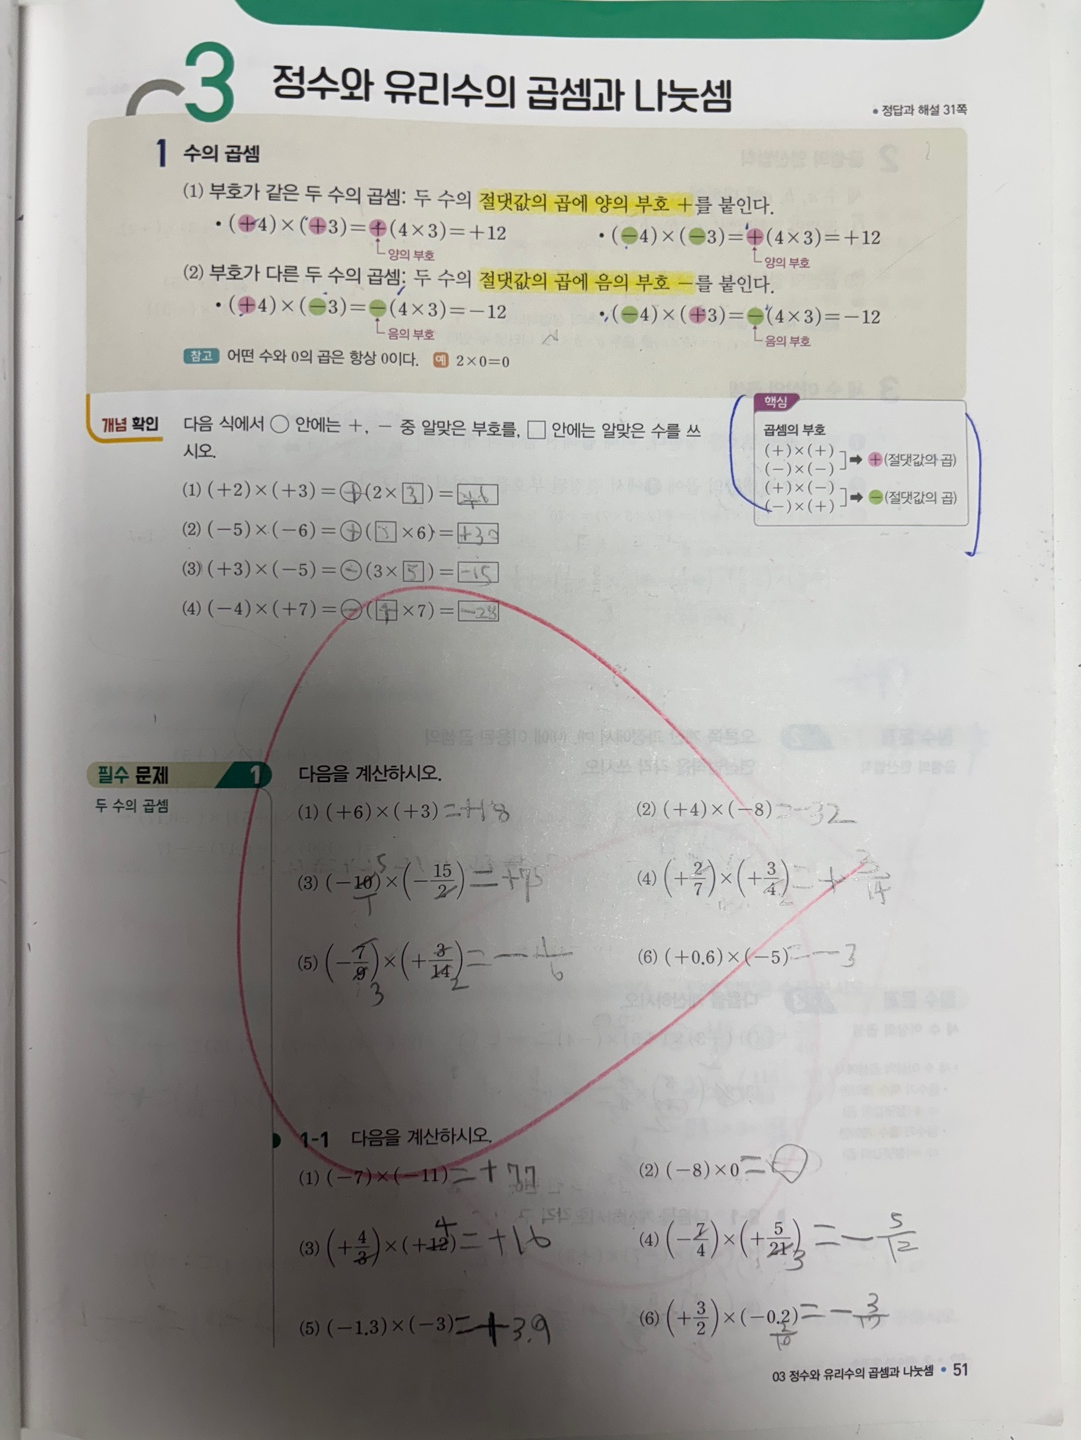 3 정수와 유리수의 곱셈과 나눗셈
• 정답과 해설 31쪽
1 수의 곱셈
(1) 부호가 같은 두 수의 곱셈: 두 수의 절댓값의 곱에 양의 부호 +를 붙인다.
• (+4)×(+3)=+(4×3)=+12 • (−4)×(−3)=+(4×3)=+12
양의 부호 양의 부호
(2) 부호가 다른 두 수의 곱셈: 두 수의 절댓값의 곱에 음의 부호 −를 붙인다.
• (+4)×(−3)=−(4×3)=−12 • (−4)×(+3)=−(4×3)=−12
음의 부호 음의 부호
참고 어떤 수와 0의 곱은 항상 0이다. 예 2×0=0
개념 확인 다음 식에서 ○ 안에는 +, − 중 알맞은 부호를, □ 안에는 알맞은 수를 쓰
시오.
(1) (+2)×(+3)=+(2×3)=+6
(2) (−5)×(−6)=+(5×6)=+30
(3) (+3)×(−5)=−(3×5)=−15
(4) (−4)×(+7)=−(4×7)=−28
핵심
곱셈의 부호
(+)×(+)
(−)×(−) ➡ +(절댓값의 곱)
(+)×(−)
(−)×(+) ➡ −(절댓값의 곱)
필수 문제 1 다음을 계산하시오.
두 수의 곱셈
(1) (+6)×(+3)=+18 (2) (+4)×(−8)=−32
(3) (−10)×(−15/2)=+75 (4) (+2/7)×(+3/4)=+3/14
(5) (−7/9)×(+3/14)=−1/6 (6) (+0.6)×(−5)=−3
1-1 다음을 계산하시오.
(1) (−7)×(−11)=+77 (2) (−8)×0=0
(3) (+4/3)×(+12)=+16 (4) (−7/4)×(+5/21)=−5/12
(5) (−1.3)×(−3)=+3.9 (6) (+3/2)×(−0.2)=−3/10
03 정수와 유리수의 곱셈과 나눗셈 • 51